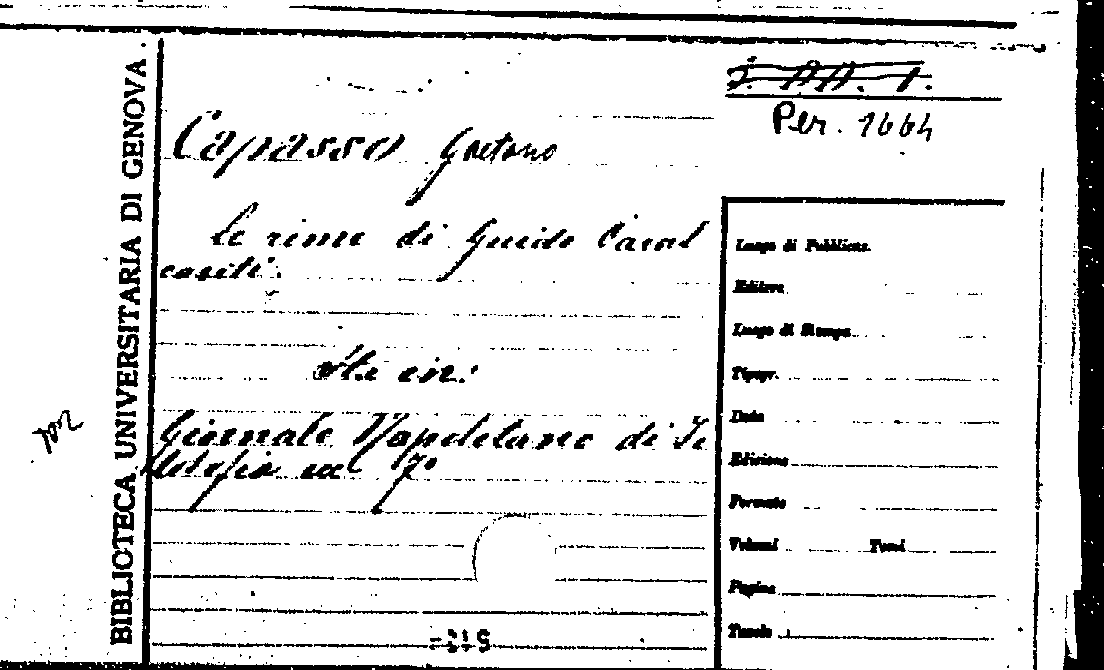 BIBLIOTECA UNIVERSITARIA DI GENOVA.
Per. 1664
Capasso Gaetano
Le rime di Guido Caval
canti.
Sta in:
Giornale Napoletano di Fi
losofia ecc 7º
Luogo di Pubblicaz.
Editore
Luogo di Stampa
Tipogr.
Data
Edizione
Formato
Volumi Tomi
Pagine
Tavole